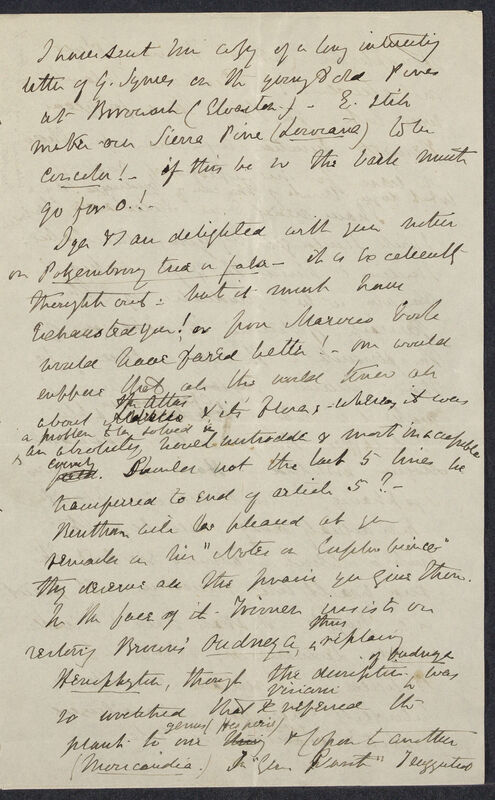 I have sent him copy of a long interesting
letter of G. Symes on the young & old Pines
at (Elvaston) - E. still
makes our Sierra Pine (Lowiana) to be
concolor! - if this be so the bark must
go for 0.! -
I am delighted with your notice
on - it is excellently
thought out: but it must have
exhausted you! or poor Marocco book
would have fared better! - one would
suppose that all the world knew all
about the Atlas & its flora - whereas it was
a problem to be solved in
an absolutely untrodde & most inaccessible
country. Should not the last 5 lines be
transferred to end of article 5? -
Bentham will be pleased at your
remarks on his "Notes on Euphorbiaceae"
they deserve all the praise you give them.
In the face of it Trimen insists on
restoring Brown's Oudneya, thus replacing
Henophyton, though the description of Oudneya was
so wretched that he referred the
plant to one genus (Hesperis) & to another
(Moricandia). In "Gen Plant" I suggested